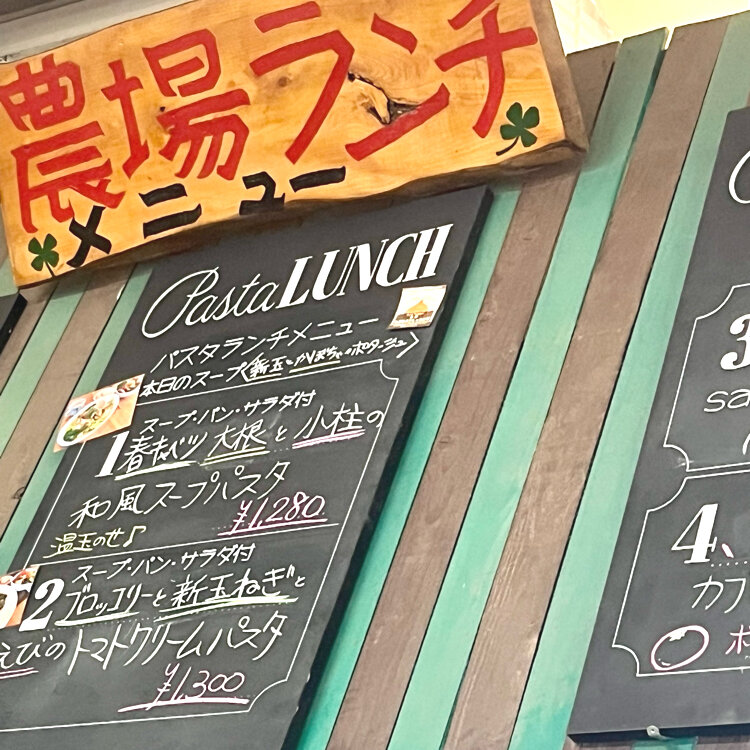 農場ランチ
メニュー
Pasta LUNCH
パスタランチメニュー
本日のスープ〈新玉とかぼちゃのポタージュ〉
スープ・パン・サラダ付
1 春キャベツ 大根と小柱の
和風スープパスタ
温玉のせ♪
¥1,280
スープ・パン・サラダ付
2 ブロッコリーと新玉ねぎと
えびのトマトクリームパスタ
¥1,300
3
sa
4、
カフ
ポ